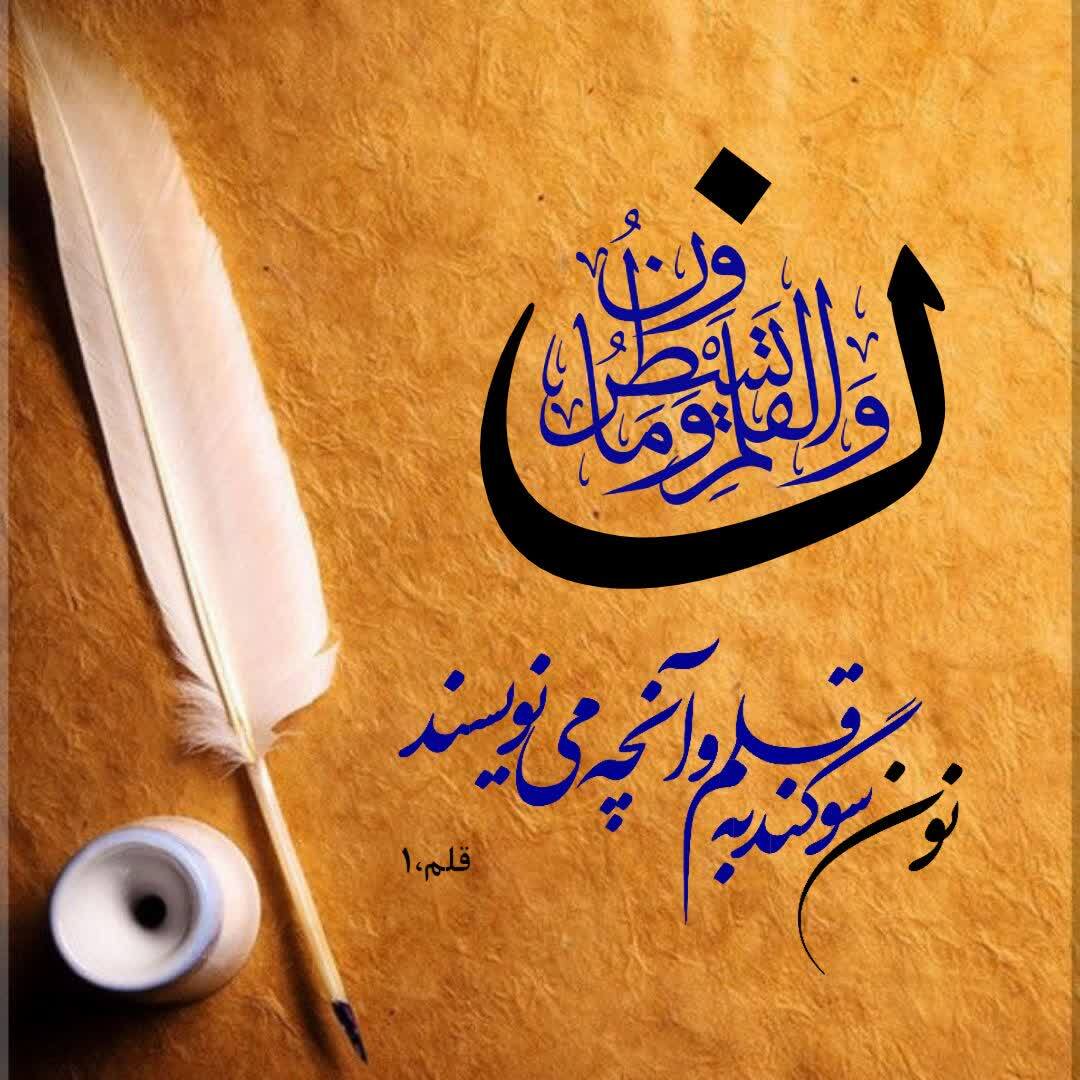 ن وَالْقَلَمِ وَمَا يَسْطُرُونَ
نون سوگند به قلم و آنچه می نویسند
قلم،۱